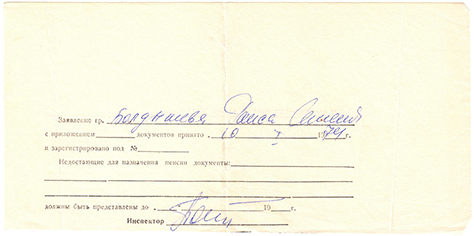 Заявление гр. Болдышева Раиса
с приложением ______ документов принято 10 I 1974 г.
и зарегистрировано под № ______
Недостающие для назначения пенсии документы:
должны быть представлены до ______ 19__ г.
Инспектор